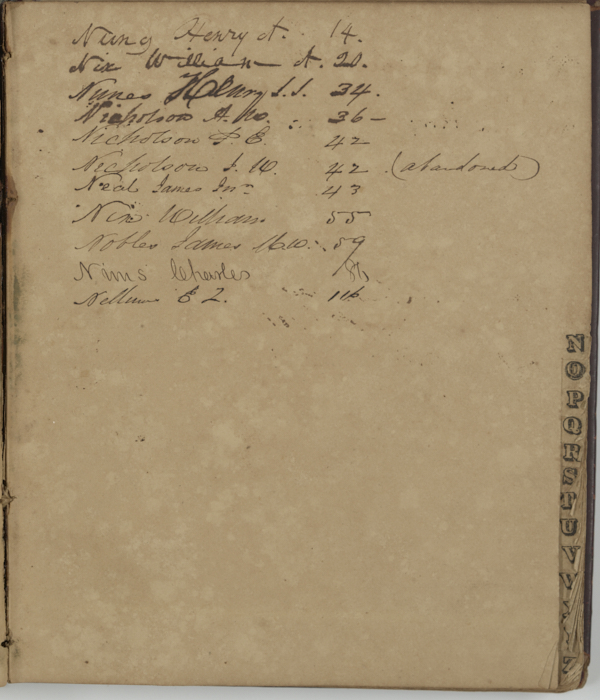 Nung Henry A. 14.
Nix William A. 20.
Nunes Henry S.S. 34.
Nicholson A. W. 36-
Nicholson P. E. 42
Nicholson J. W. 42 (abandoned)
Neal James Jnr 43
Nix William 55
Nobles James 59
Nims Charles 86
Nellums E Z. 116
N
O
P
Q
R
S
T
U
V